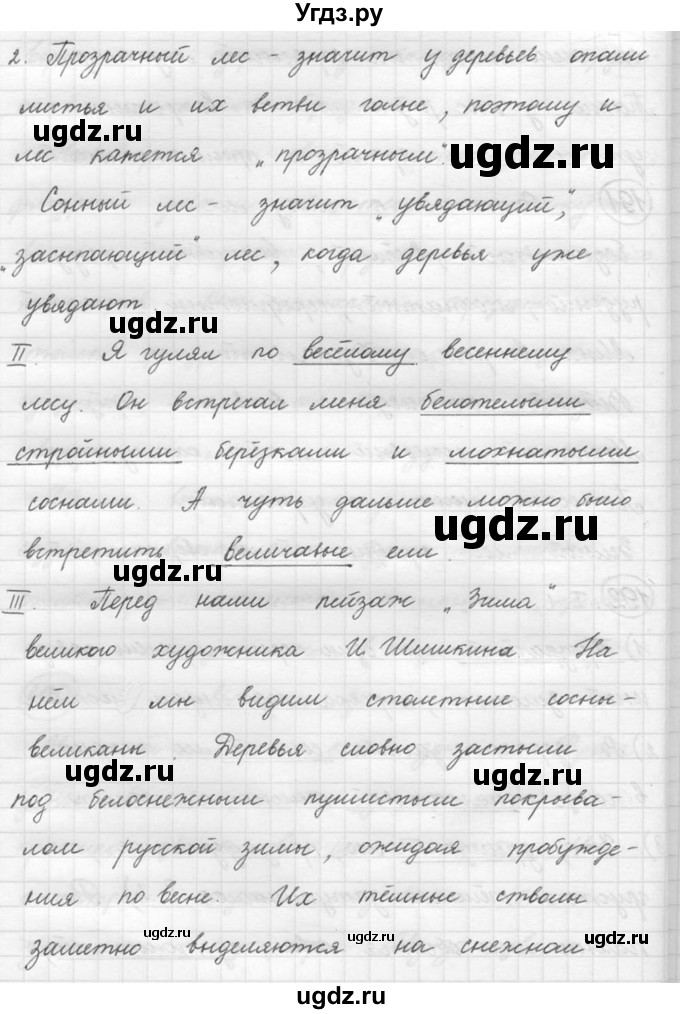 Угдз.ру
2. Прозрачный лес - значит у деревьев опали
листья и их ветви голые, поэтому и
лес кажется „прозрачным".
ugdz.ru
ugdz.ru
Сонный лес - значит „увядающий",
„засыпающий" лес, когда деревья уже
увядают
ugdz.ru
II. Я гулял по весёлому весеннему
лесу. Он встречал меня белотелыми
стройными берёзками и мохнатыми
соснами. А чуть дальше можно было
ugdz.ru
встретить величавые ели.
ugdz.ru
III. Перед нами пейзаж „Зима"
великого художника И Шишкина. На
нём мы видим столетние сосны-
великаны. Деревья словно застыли
ugdz.ru
ugdz.ru
под белоснежным пушистым покрыва-
лом русской зимы, ожидая пробужде-
ния по весне. Их тёмные стволы
ugdz.ru
ugdz.ru
заметно выделяются на снежном
ugdz.ru